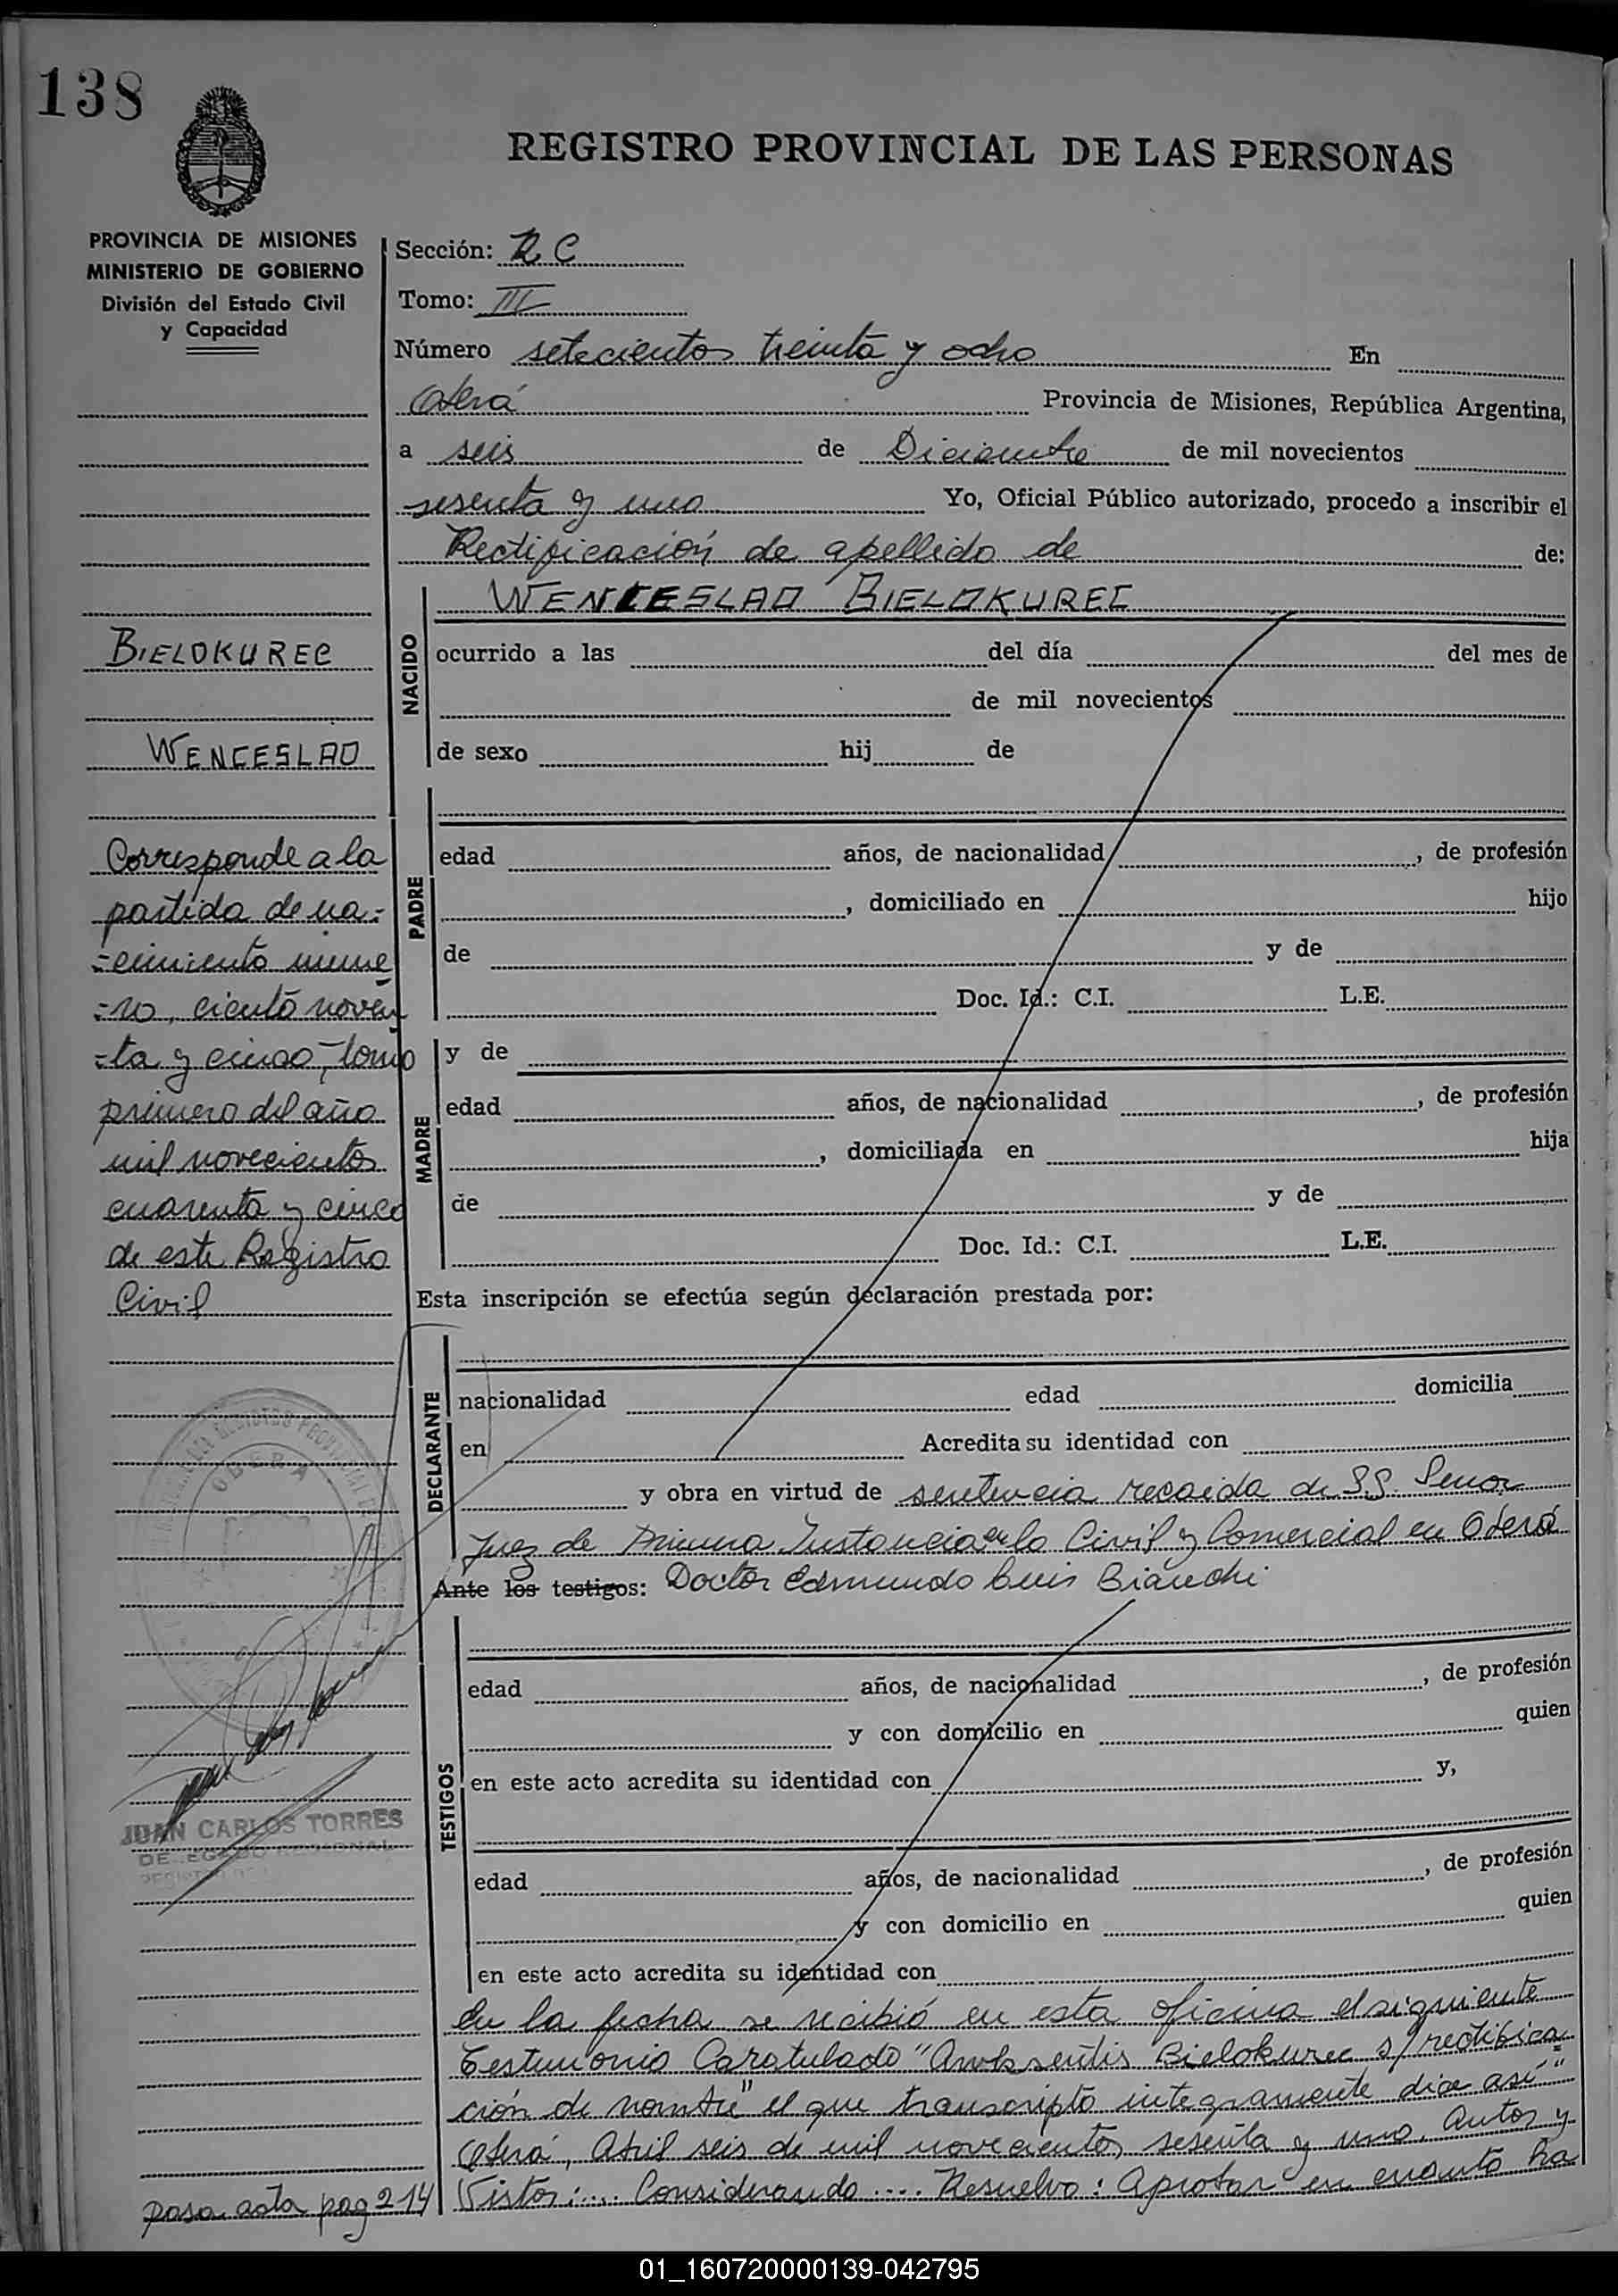 138
REGISTRO PROVINCIAL DE LAS PERSONAS
PROVINCIA DE MISIONES
MINISTERIO DE GOBIERNO
División del Estado Civil
y Capacidad
Sección: R C
Tomo: III
Número setecientos treinta y ocho En
Oberá Provincia de Misiones, República Argentina,
a seis de Diciembre de mil novecientos
sesenta y uno Yo, Oficial Público autorizado, procedo a inscribir el
Rectificación de apellido de de:
WENCESLAO BIELOKUREC
BIELOKUREC
WENCESLAO
Corresponde a la
partida de na=
=cimiento nume
=ro, ciento noven
=ta y cinco, tomo
primero del año
mil novecientos
cuarenta y cinco
de este Registro
Civil
NACIDO
ocurrido a las del día del mes de
de mil novecientos
de sexo hij de
PADRE
edad años, de nacionalidad , de profesión
, domiciliado en hijo
de y de
Doc. Id.: C.I. L.E.
MADRE
y de
edad años, de nacionalidad , de profesión
, domiciliada en hija
de y de
Doc. Id.: C.I. L.E.
Esta inscripción se efectúa según declaración prestada por:
DECLARANTE
nacionalidad edad domicilia
en Acredita su identidad con
y obra en virtud de sentencia recaida de S.S. Senor
Juez de Primera Instancia en lo Civil y Comercial en Oberá
Ante los testigos: Doctor Edmundo Luis Bianchi
OBERA
JUAN CARLOS TORRES
DELEGADO REGIONAL
TESTIGOS
edad años, de nacionalidad , de profesión
y con domicilio en quien
en este acto acredita su identidad con y,
edad años, de nacionalidad , de profesión
y con domicilio en quien
en este acto acredita su identidad con
En la fecha se recibió en esta oficina el siguiente
Testimonio Caratulado "Awksentis Bielokurec s/rectifica=
ción de nombre" el que transcripto integramente dice así "
Oberá, Abril seis de mil novecientos sesenta y uno. Autos y
Vistos:.... Considerando.... Resuelvo: Aprobar en cuanto ha
pasa acta pag 214
01_160720000139-042795